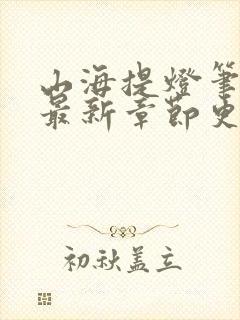 山海提燈筆
最新章節史
初秋盖立